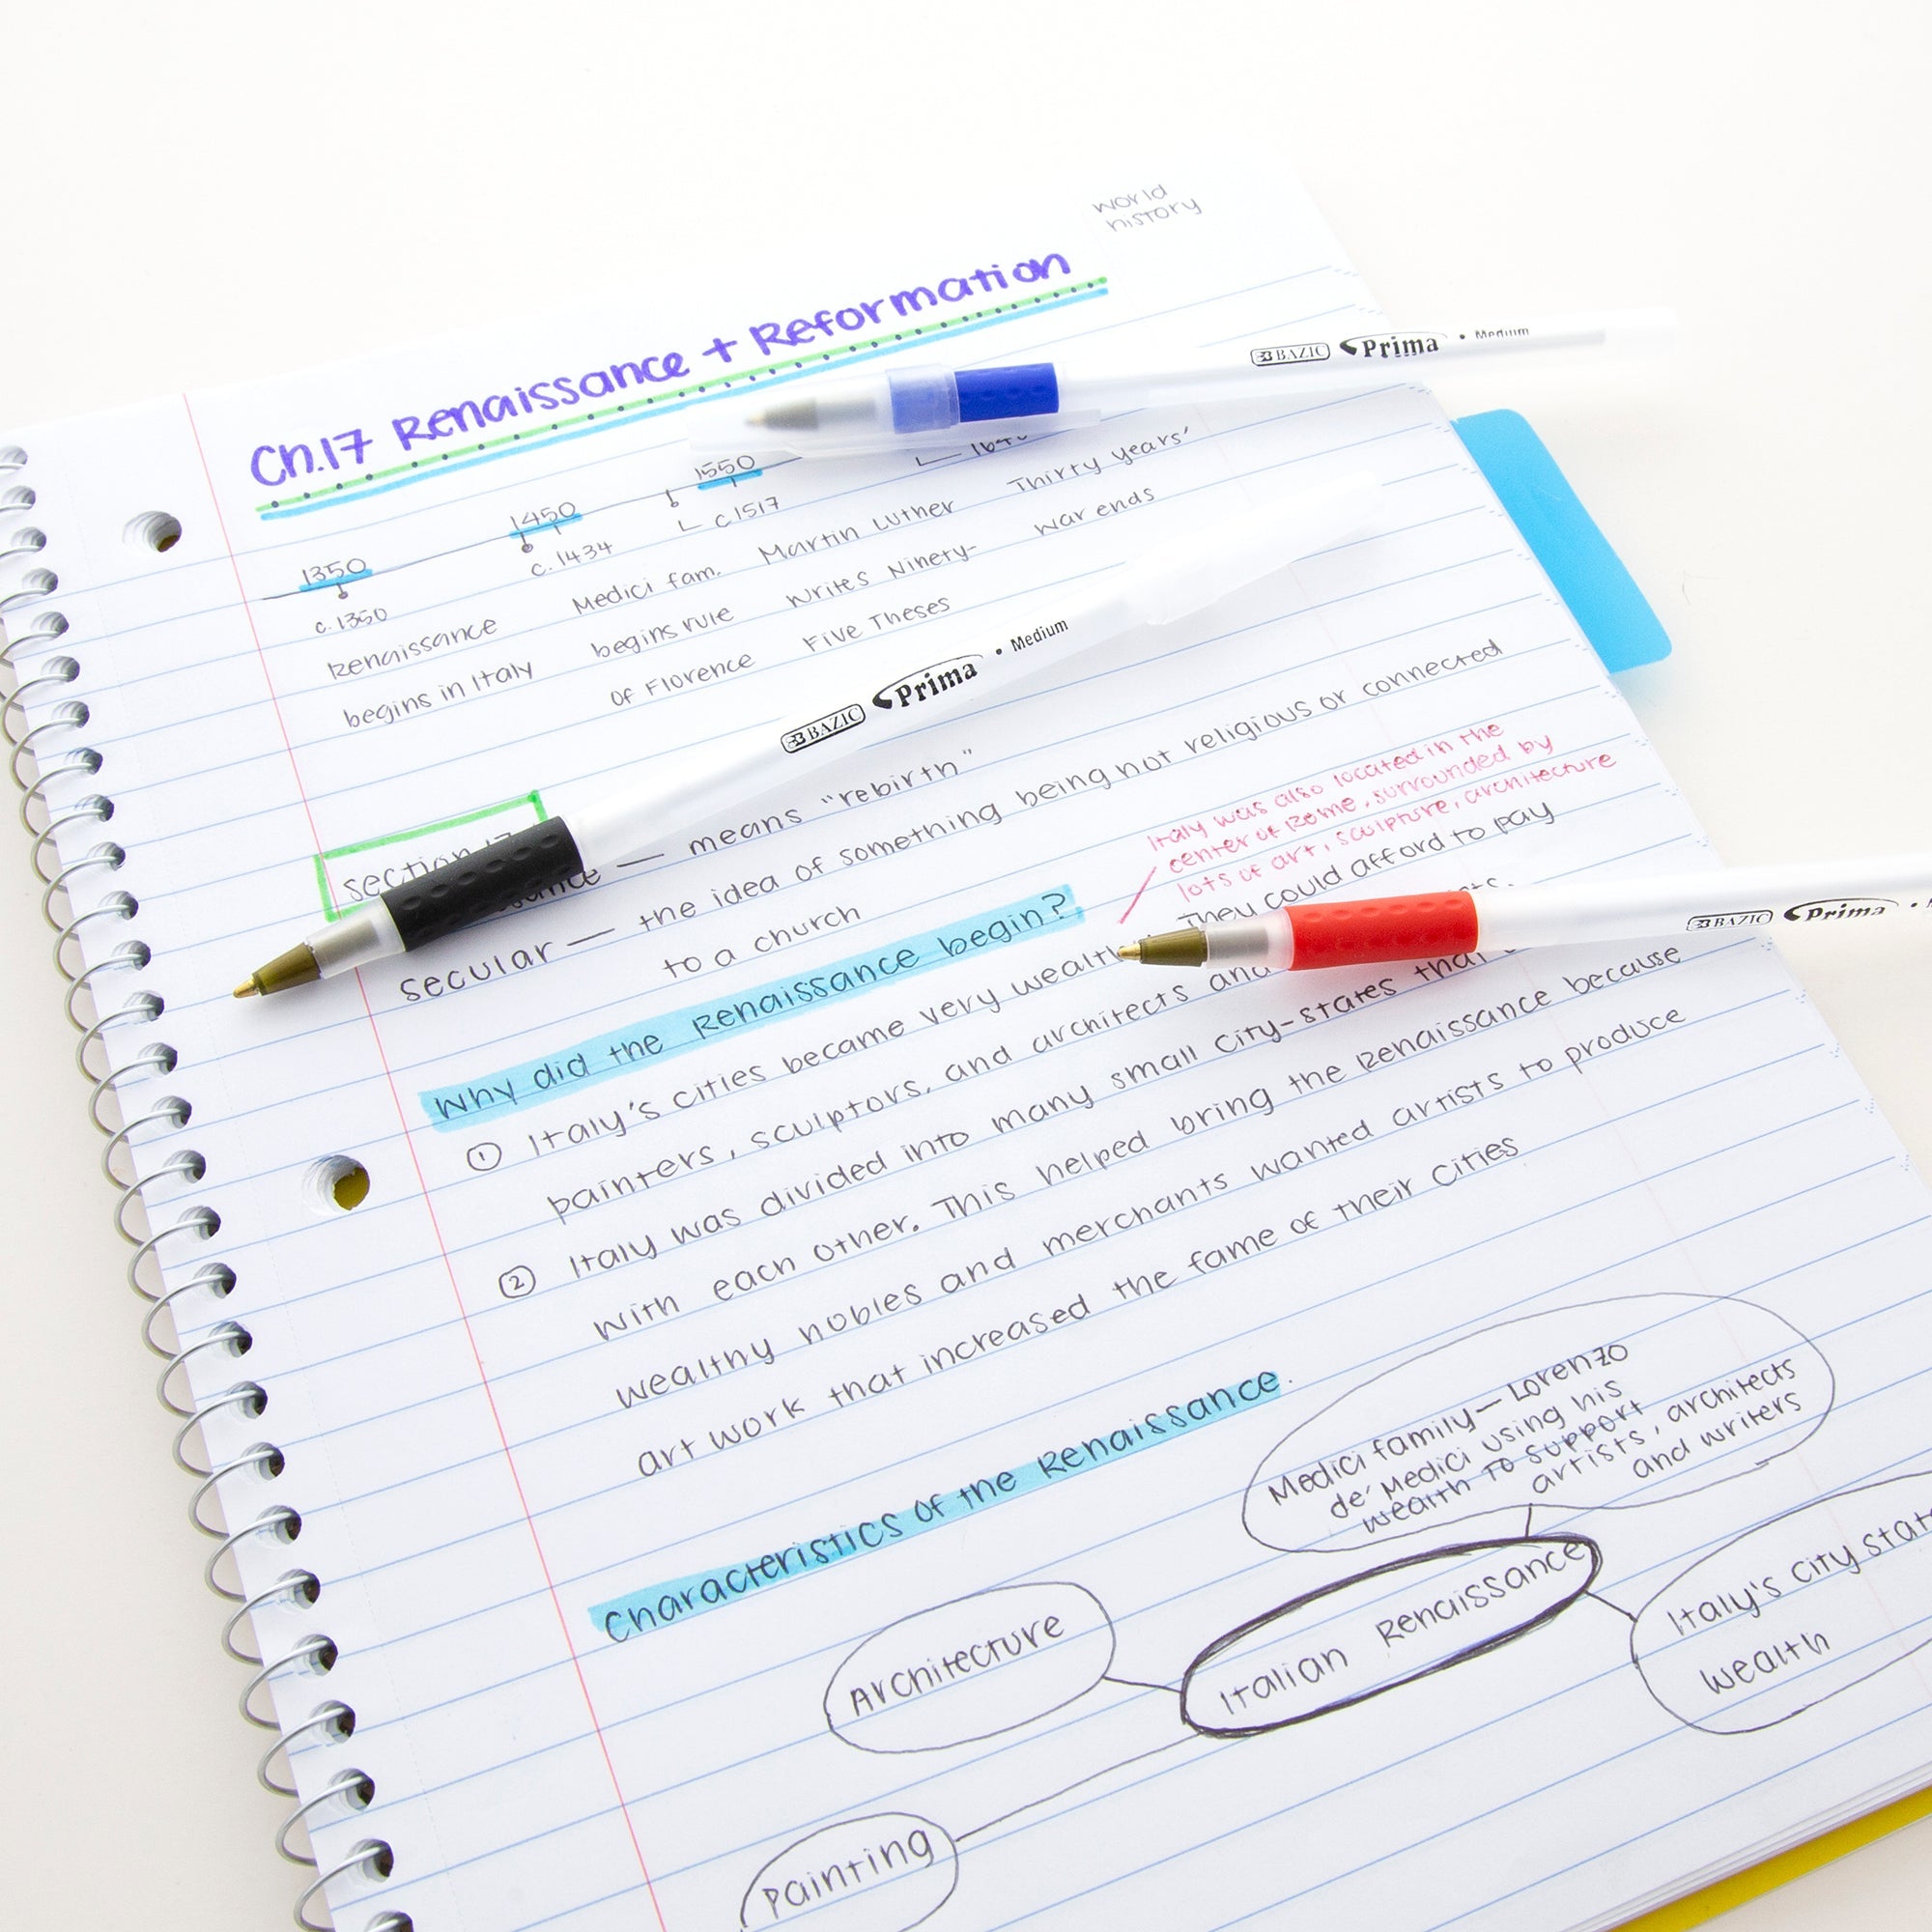 world
history
Ch.17 Renaissance + Reformation
1350 1450 1550
c. 1350 c. 1434 c 1517
Renaissance Medici fam. Martin Luther Thirty Years'
begins in Italy begins rule writes Ninety- war ends
of Florence Five Theses
BAZIC Prima • Medium
BAZIC Prima • Medium
section
means "rebirth"
secular — the idea of something being not religious or connected
to a church
Italy was also located in the
center of Rome, surrounded by
lots of art, sculpture, architecture
Why did the Renaissance begin?
① Italy's cities became very They could afford to pay
painters, sculptors, and architects
BAZIC Prima •
② Italy was divided into many small city-states
with each other. This helped bring the Renaissance because
wealthy nobles and merchants wanted artists to produce
art work that increased the fame of their cities
Characteristics of the Renaissance.
Medici family — Lorenzo
de' Medici using his
wealth to support
artists, architects
and writers
Italian Renaissance
Architecture
Italy's city
wealth
Painting